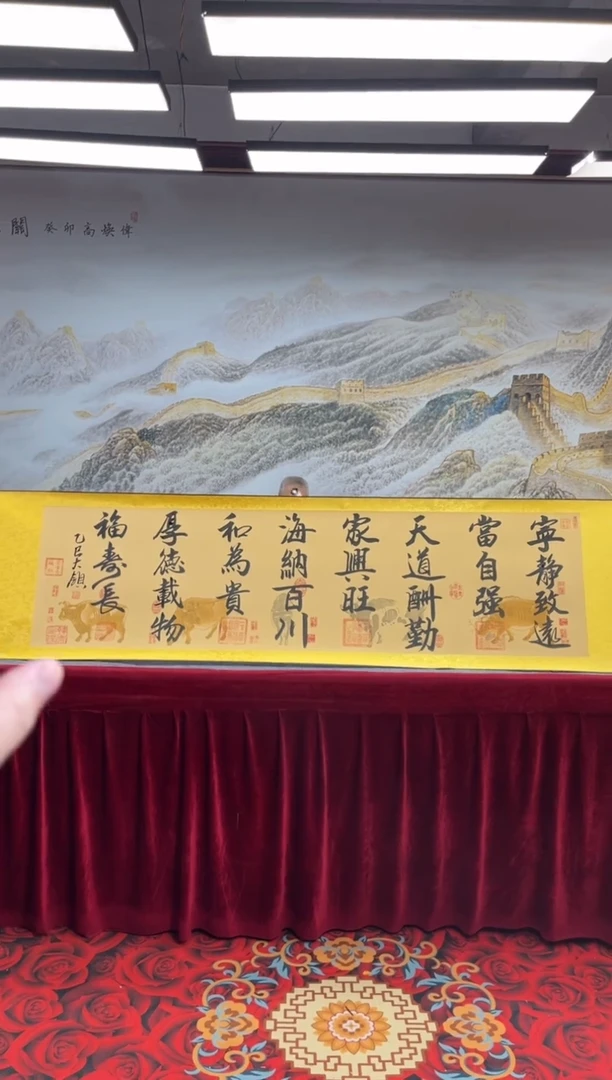 關 癸卯高
寧靜致遠
當自强
天道酬勤
家興旺
海納百川
和為貴
厚德載物
福壽長
乙巳大領